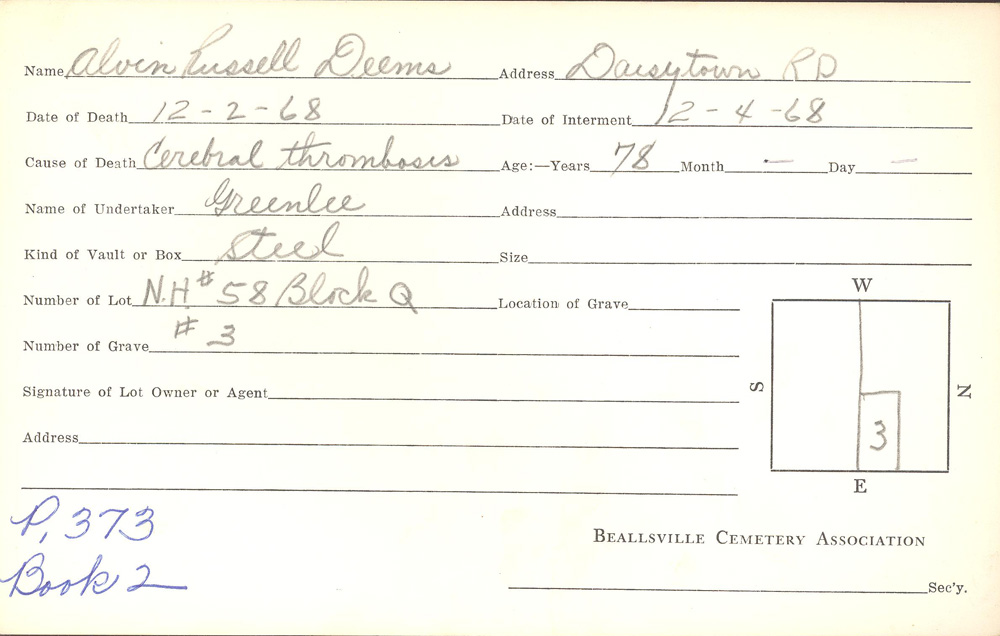 Name Alvin Russell Deems Address Daisytown RD
Date of Death 12-2-68 Date of Interment 12-4-68
Cause of Death Cerebral thrombosis Age:—Years 78 Month — Day —
Name of Undertaker Greenlee Address
Kind of Vault or Box Steel Size
Number of Lot N.H# 58 Block Q Location of Grave
Number of Grave # 3
Signature of Lot Owner or Agent
Address
W
S
N
3
E
P. 373
Book 2
BEALLSVILLE CEMETERY ASSOCIATION
Sec'y.